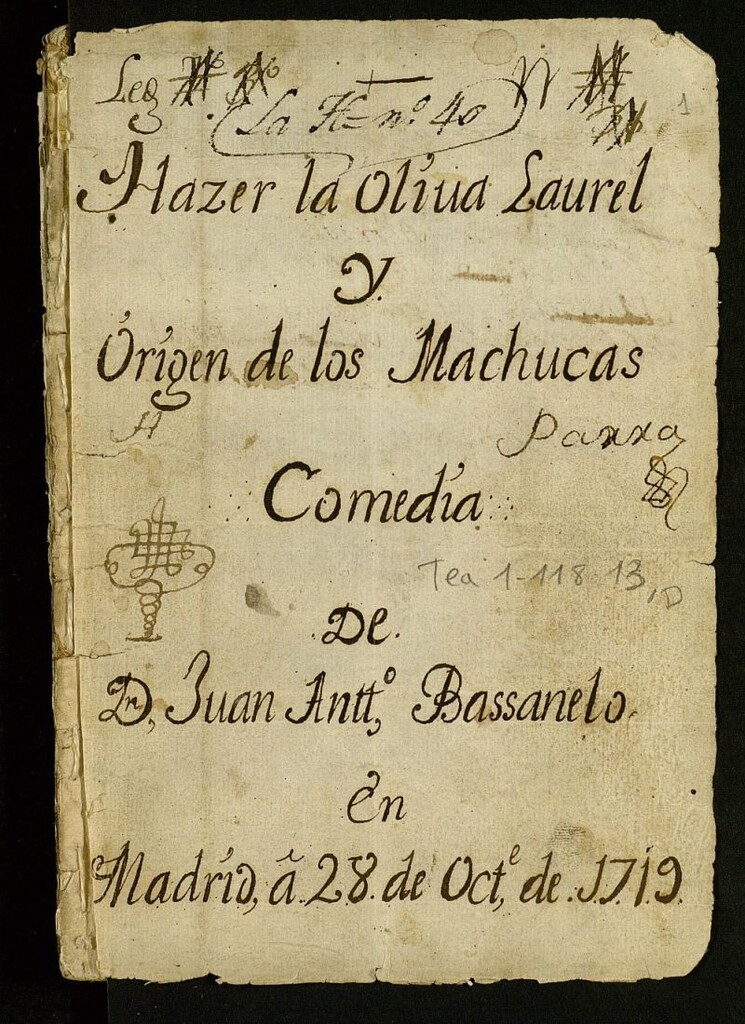 Leg
1
La H= nº. 40
Hazer la Oliua Laurel
Y.
Origen de los Machucas
H
Parra
Comedia
Tea 1-118-13, D
De.
Dn, Juan Antt,º Bassanelo.
en
Madrid, â 28. de Oct,e de. 1719.